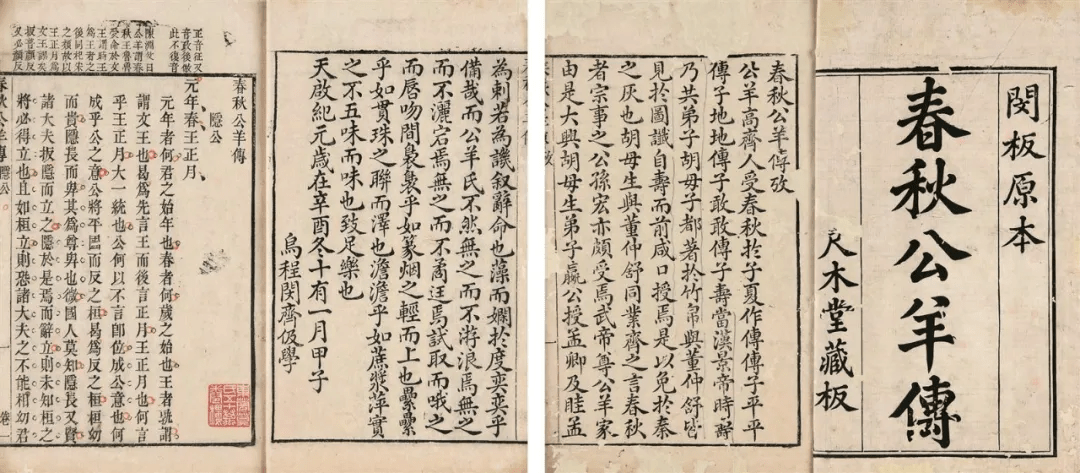 閔板原本
春秋公羊傳
尺木堂藏板
春秋公羊傳攷
公羊高齊人受春秋於子夏作傳傳子平平
傳子地地傳子敢敢傳子壽當漢景帝時壽
乃共弟子胡毋子都著於竹帛與董仲舒皆
見於圖讖自壽而前咸口授焉是以免於秦
之灰也胡毋生與董仲舒同業齊之言春秋
者宗事之公孫宏亦頗受焉武帝尊公羊家
由是大興胡毋生弟子嬴公授孟卿及眭孟
為刺若為譏叙辭命也藻而嫻於度奕奕乎
備哉而公羊氏不然無之而不游浪焉無之
而不灑宕焉無之而不矞迋焉試取而哦之
而唇吻間裊裊乎如篆烟之輕而上也纍纍
乎如貫珠之聯而澤也澹澹乎如蔗漿萍實
之不五味而味也致足樂也
天啟紀元歲在辛酉冬十有一月甲子
烏程閔齊伋學
正音征又
音政後倣
此不復音
公羊謂春
秋王魯魯
受命於文
王謂時王
爲王者之
後同杞宋
之類故以
王正月爲
文王謬矣
扳普顏反
又必顏反
春秋公羊傳
隱公
元年春王正月
元年者何君之始年也春者何歲之始也王者孰謂
謂文王也曷爲先言王而後言正月王正月也何言
乎王正月大一統也公何以不言即位成公意也何
成乎公之意公將平國而反之桓曷爲反之桓桓幼
而貴隱長而卑其爲尊卑也微國人莫知隱長又賢
諸大夫扳隱而立之隱於是焉而辭立則未知桓之
將必得立也且如桓立則恐諸大夫之不能相幼君
春秋公羊傳 隱公 卷一